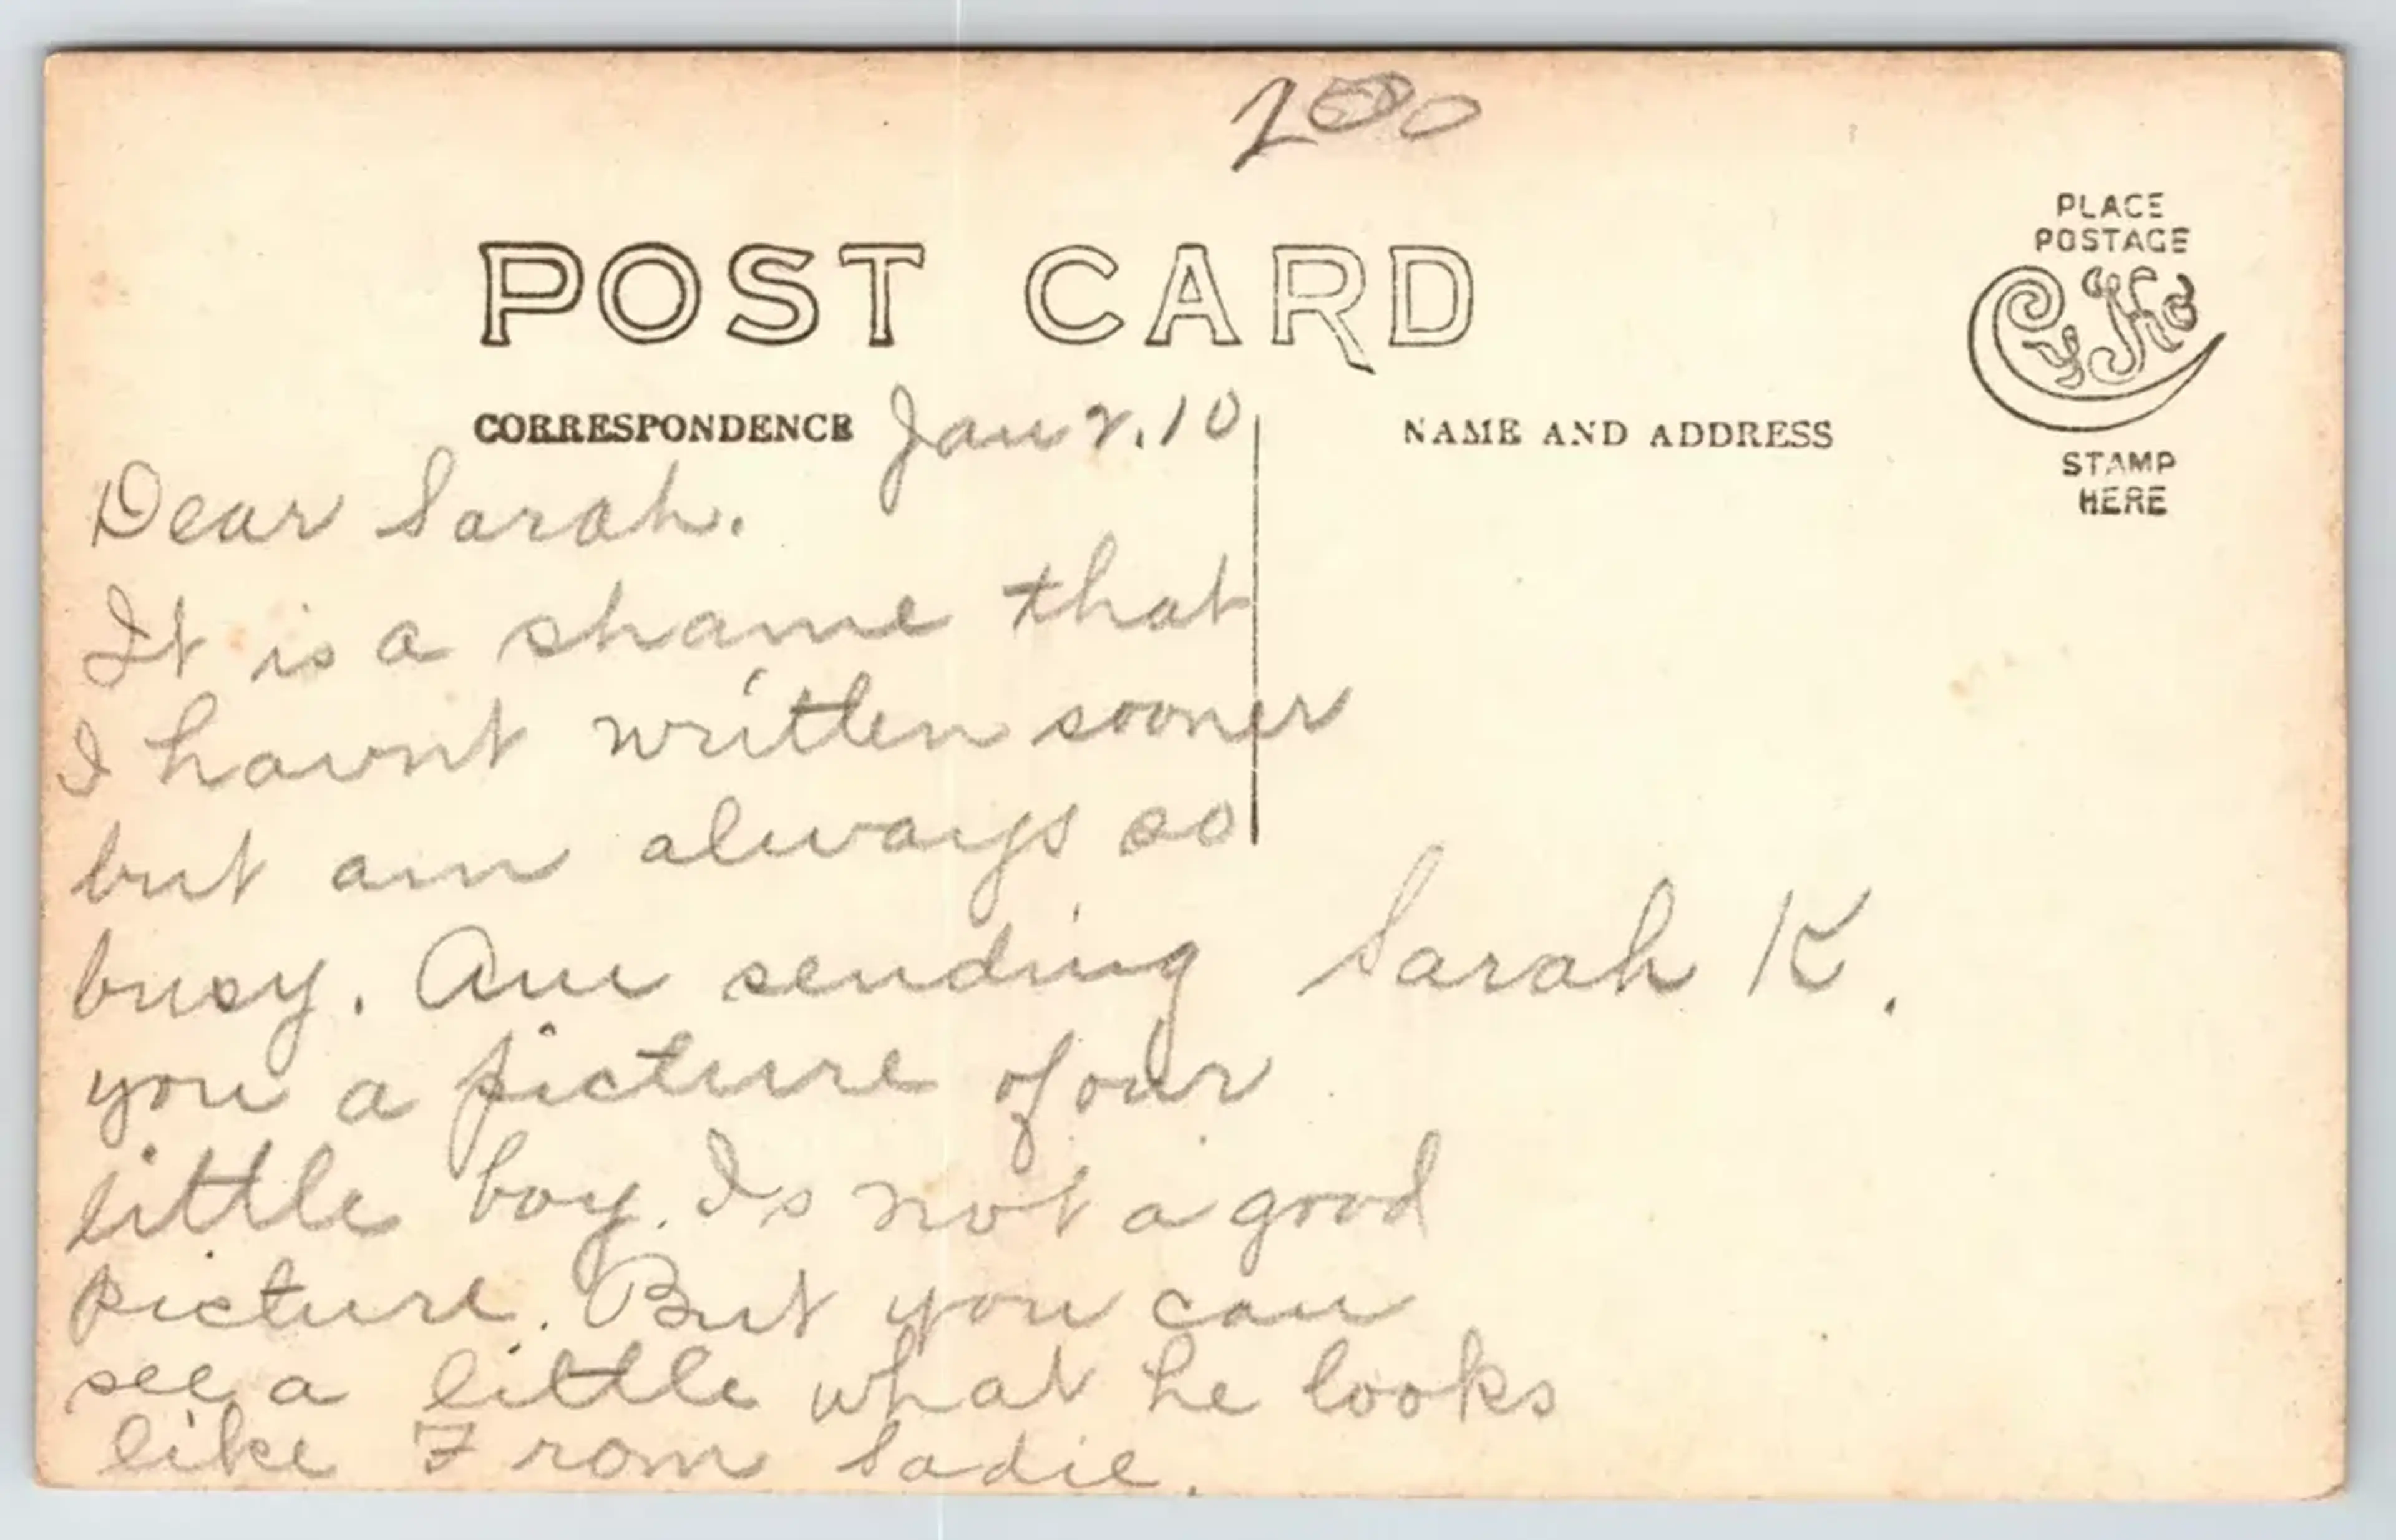 200
POST CARD
PLACE
POSTAGE
STAMP
HERE
CORRESPONDENCE
NAME AND ADDRESS
Jan 2. 10
Dear Sarah.
It is a shame that
I havnt written sooner
but am always so
busy. Am sending
you a picture of our
little boy. Is not a good
picture. But you can
see a little what he looks
like From Sadie.
Sarah K.